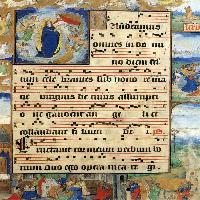 Gaudeamus
omnes in do mi
no diem fes
tum cele brantes sub hono re ma
rie virginis de cuius assumpti
o ne gaudent an ge li et
collaudant fi lium de i.
Eructauit cor meum verbum bo
num dico ego opera mea re gi